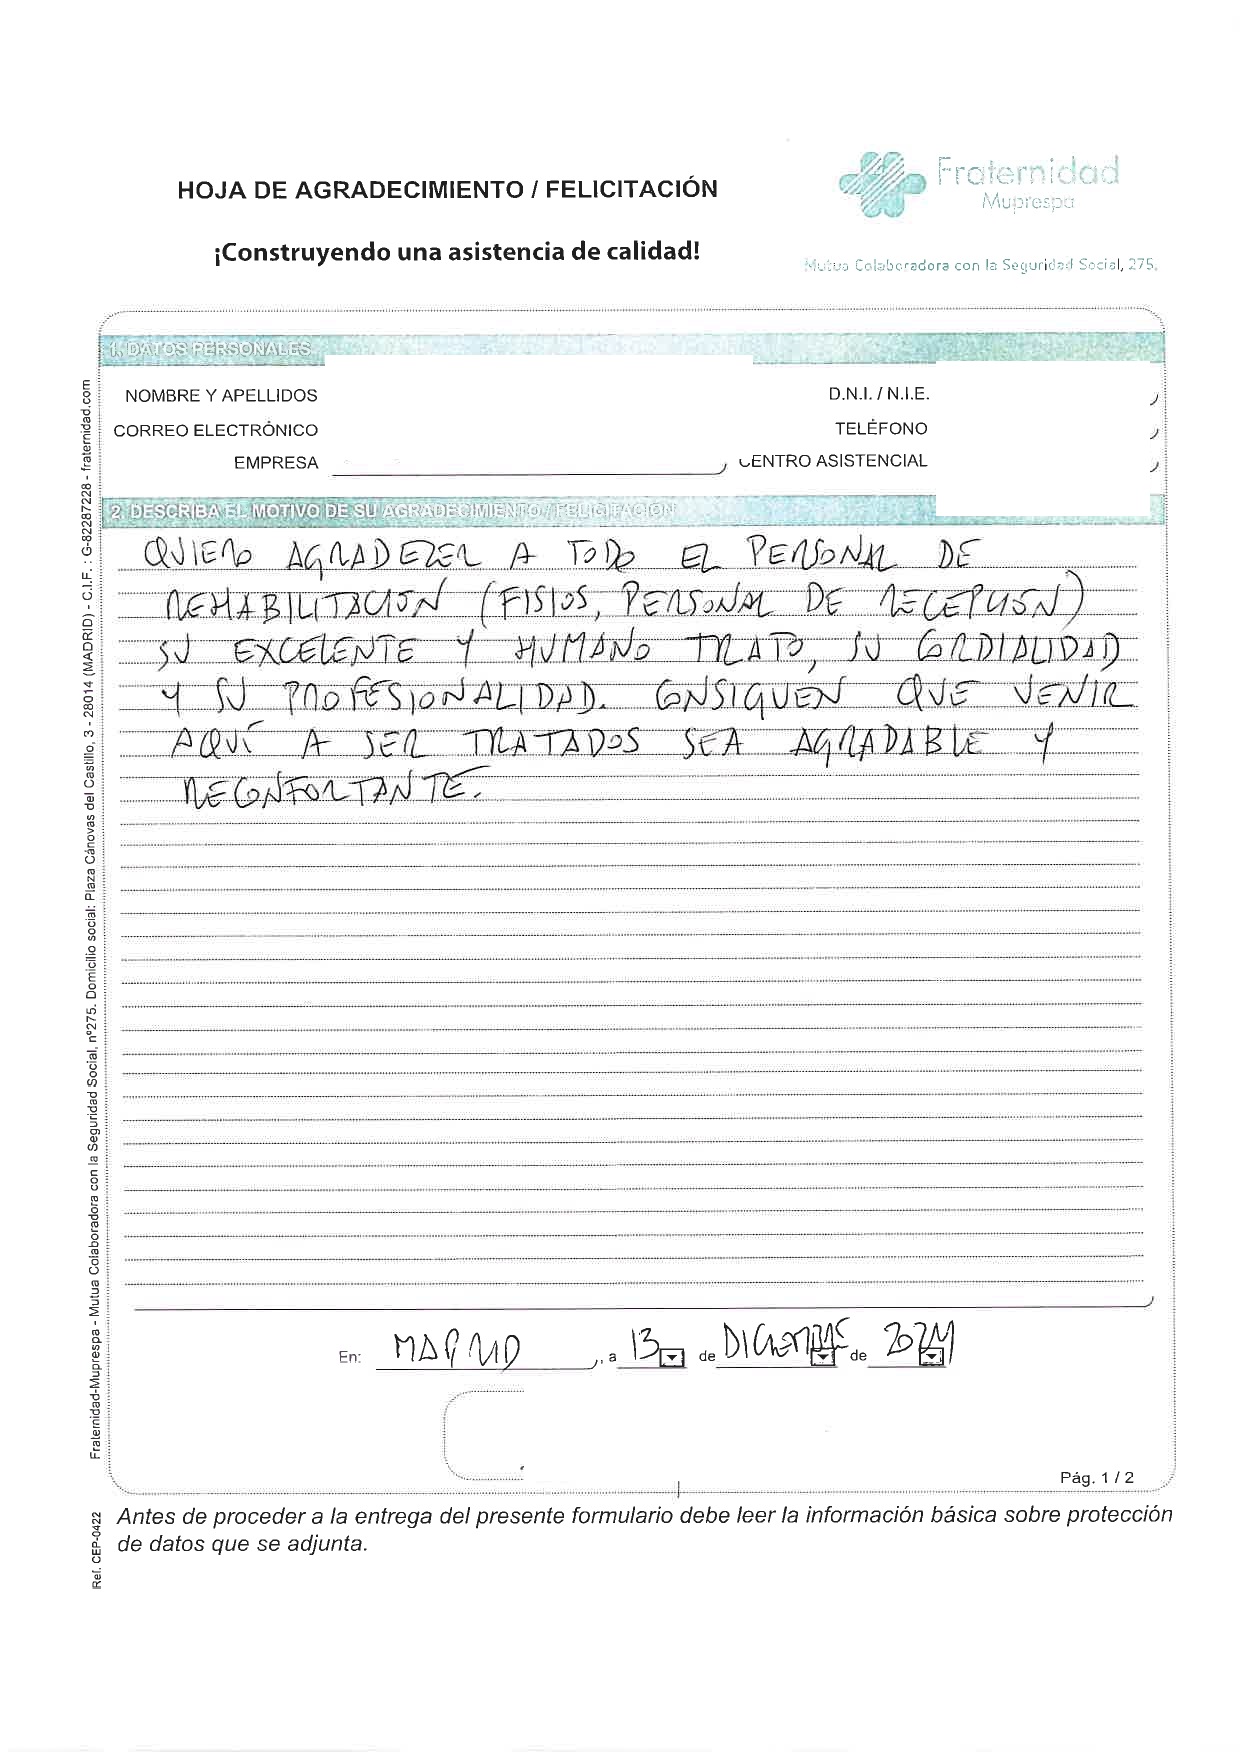 HOJA DE AGRADECIMIENTO / FELICITACIÓN
¡Construyendo una asistencia de calidad!
Fraternidad
Muprespa
Mutua Colaboradora con la Seguridad Social, 275.
1. DATOS PERSONALES
NOMBRE Y APELLIDOS
D.N.I. / N.I.E.
CORREO ELECTRÓNICO
TELÉFONO
EMPRESA
CENTRO ASISTENCIAL
2. DESCRIBA EL MOTIVO DE SU AGRADECIMIENTO / FELICITACIÓN
QUIERO AGRADECER A TODO EL PERSONAL DE
REHABILITACIÓN (FISIOS, PERSONAL DE RECEPCIÓN)
SU EXCELENTE Y HUMANO TRATO, SU CORDIALIDAD
Y SU PROFESIONALIDAD. CONSIGUEN QUE VENIR
AQUÍ A SER TRATADOS SEA AGRADABLE Y
RECONFORTANTE.
En: MADRID, a 13 de DICIEMBRE de 2024
Pág. 1 / 2
Antes de proceder a la entrega del presente formulario debe leer la información básica sobre protección
de datos que se adjunta.
Fraternidad-Muprespa - Mutua Colaboradora con la Seguridad Social, nº275. Domicilio social: Plaza Cánovas del Castillo, 3 - 28014 (MADRID) - C.I.F. : G-82287228 - fraternidad.com
Ref. CEP-0422